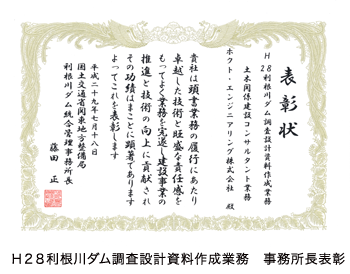 表彰状
H28利根川ダム調査設計資料作成業務
土木関係建設コンサルタント業務
ホクト・エンジニアリング株式会社 殿
貴社は頭書業務の履行にあたり
卓越した技術と旺盛な責任感を
もってよく業務を完遂し建設事業の
推進と技術の向上に貢献され
その功績はまことに顕著であります
よってこれを表彰します
平成二十九年七月十八日
国土交通省関東地方整備局
利根川ダム統合管理事務所長
藤田 正
H28利根川ダム調査設計資料作成業務 事務所長表彰